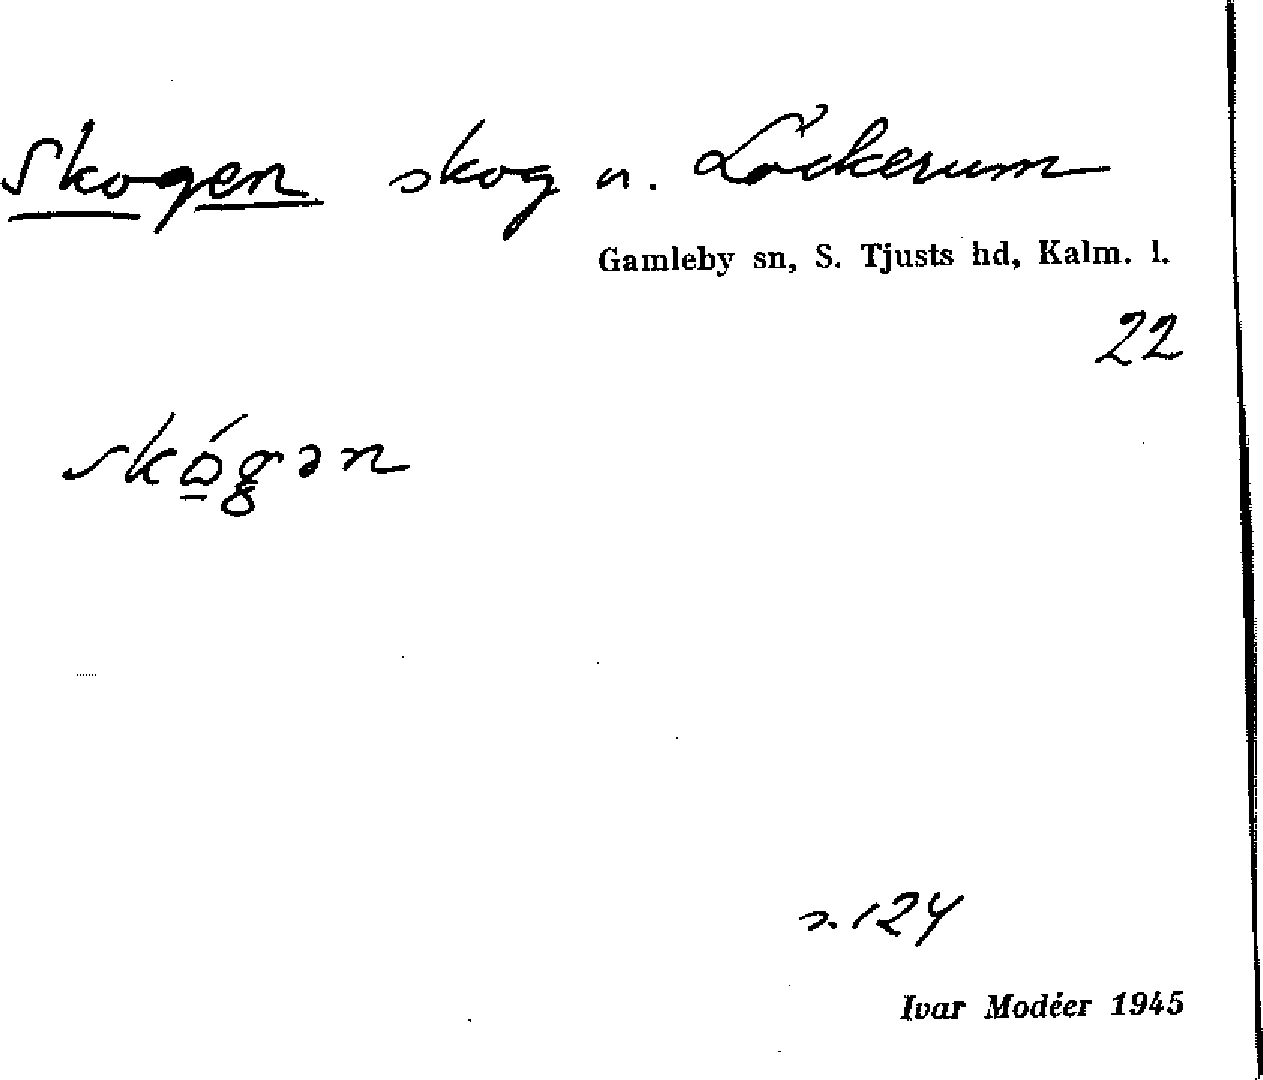 Skogen skog u. Löckerum
Gamleby sn, S. Tjusts hd, Kalm. l.
22
skógən
s. 124
Ivar Modéer 1945